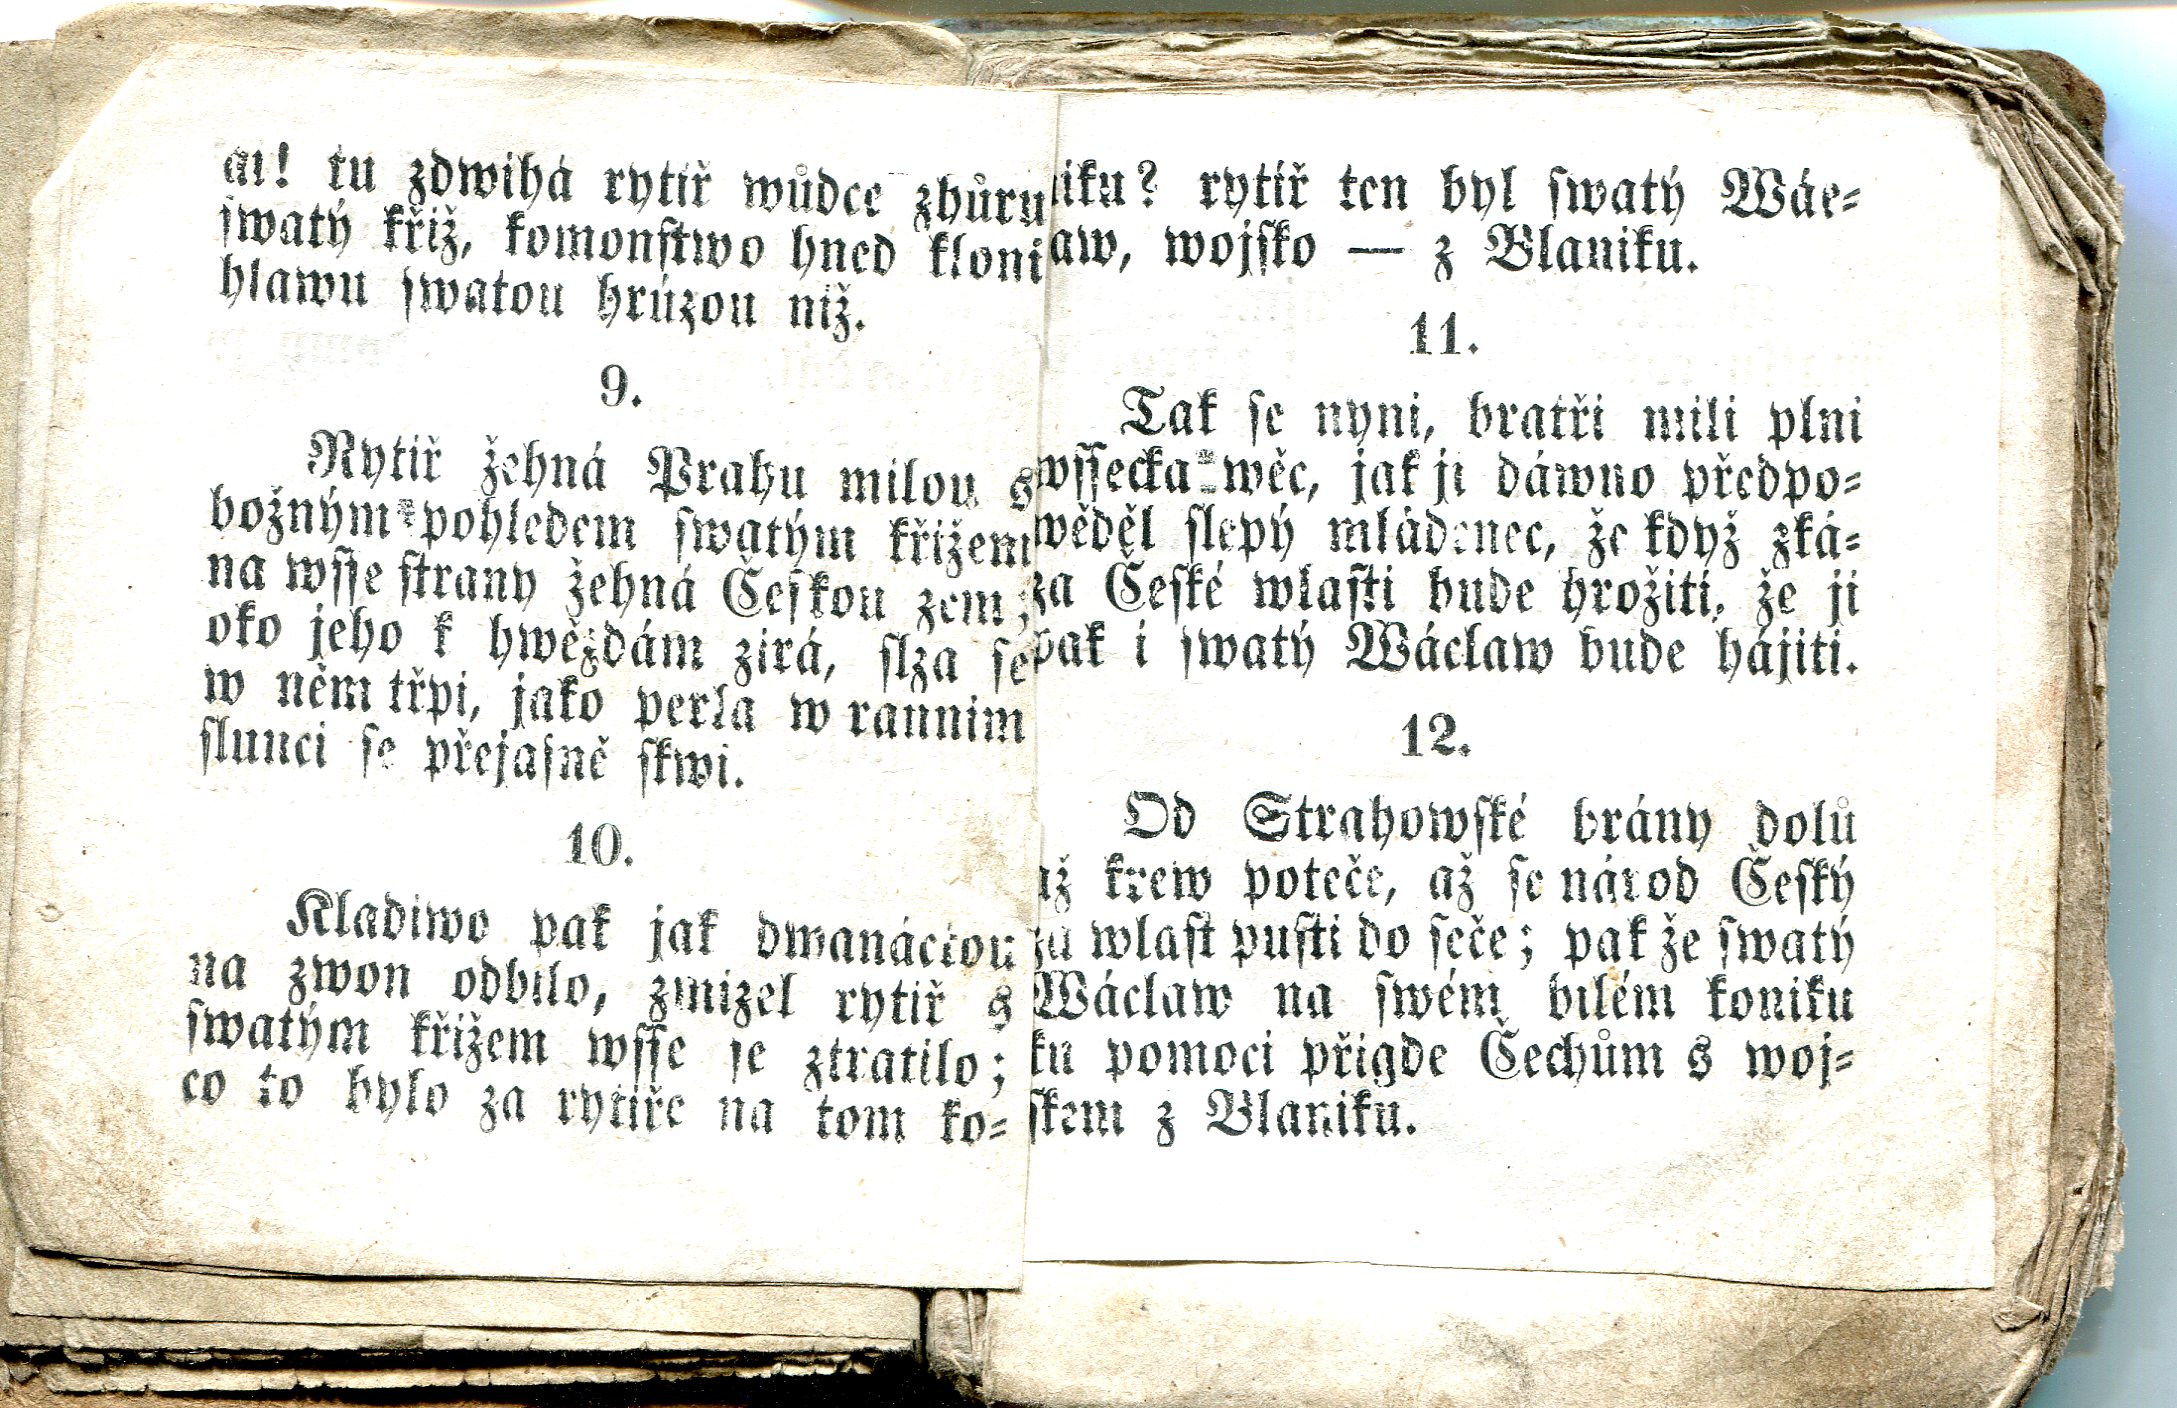 ai! tu zdwihá rytiř wůdce zhůru
swatý křiž, komonstwo hned kloni
hlawu swatou hrůzou niž.
9.
Rytiř žehná Prahu milou s
božným pohledem swatým křižem
na wsse strany žehná Českou zem;
oko jeho k hwězdám zirá, slza se
w něm třpi, jako perla w rannim
slunci se přejasně skwi.
10.
Kladiwo pak jak dwanáctou
na zwon odbilo, zmizel rytiř s
swatým křižem wsse se ztratilo;
co to bylo za rytiře na tom ko-
iku? rytiř ten byl swatý Wác-
aw, wojsko — z Blaniku.
11.
Tak se nyni, bratři mili plni
wssecka wěc, jak ji dáwno předpo-
wěděl slepý mládenec, že když zká-
za České wlasti bude hrožiti, že ji
pak i swatý Wáclaw bude hájiti.
12.
Od Strahowské brány dolů
až krew poteče, až se národ Český
za wlast pusti do seče; pak že swatý
Wáclaw na swém bilém koniku
ku pomoci přigde Čechům s woj-
skem z Blaniku.